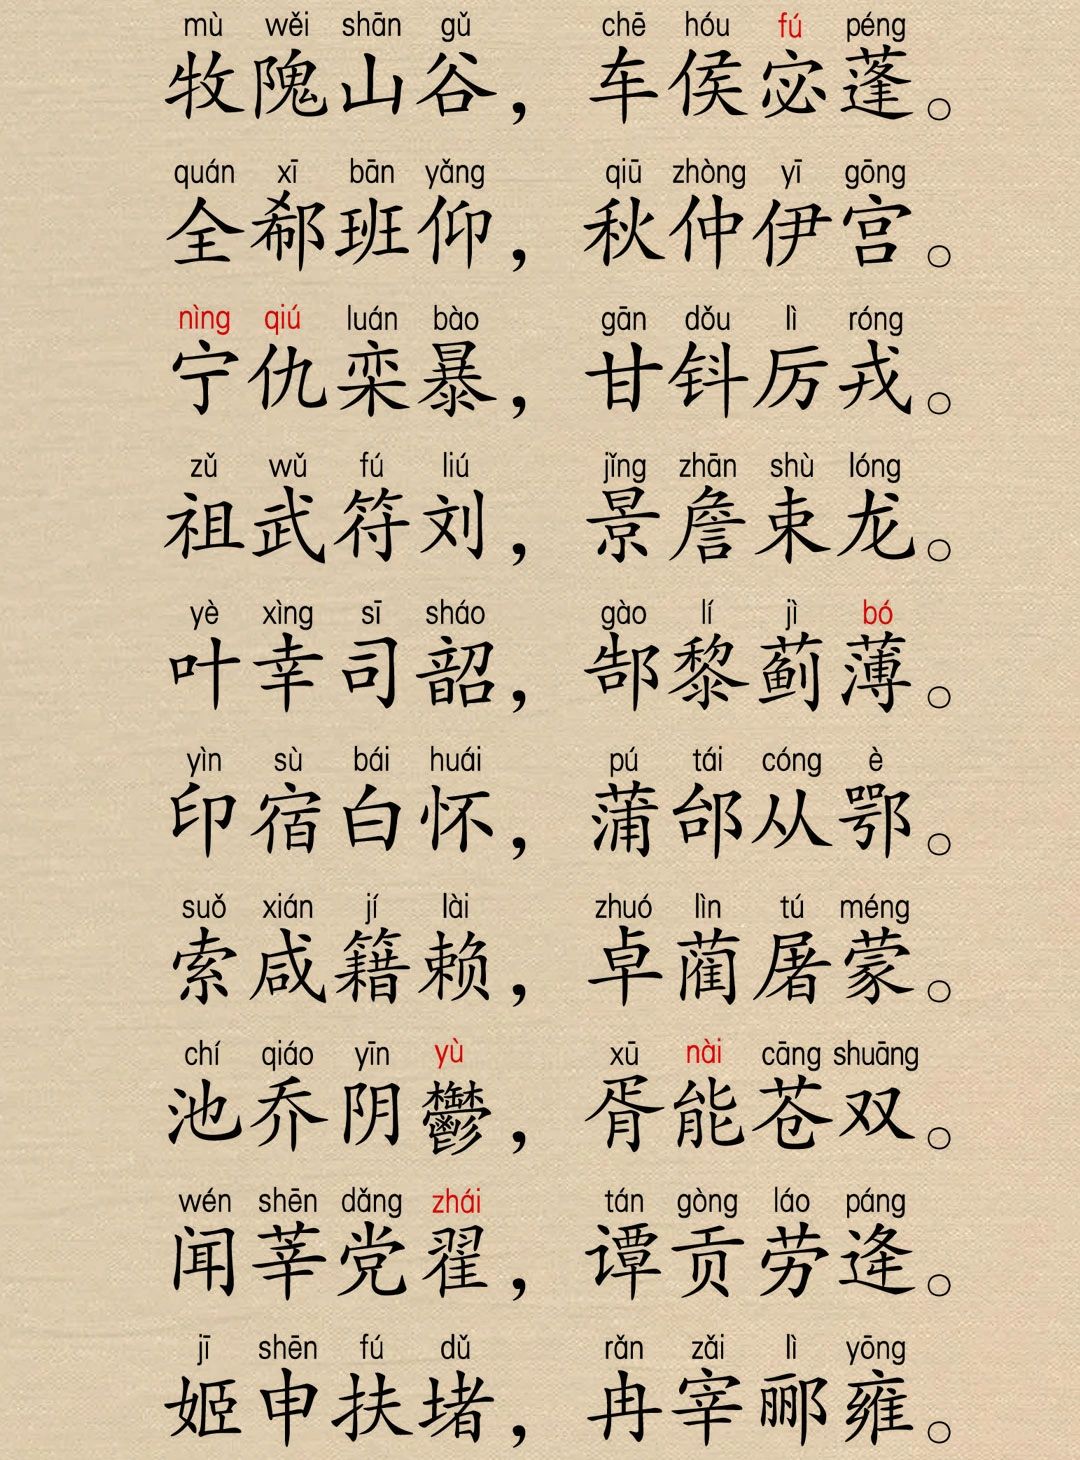 mù wěi shān gǔ chē hóu fú péng
牧隗山谷，车侯宓蓬。
quán xī bān yǎng qiū zhòng yī gōng
全郗班仰，秋仲伊宫。
nìng qiú luán bào gān dǒu lì róng
宁仇栾暴，甘钭厉戎。
zǔ wǔ fú liú jǐng zhān shù lóng
祖武符刘，景詹束龙。
yè xìng sī sháo gào lí jì bó
叶幸司韶，郜黎蓟薄。
yìn sù bái huái pú tái cóng è
印宿白怀，蒲邰从鄂。
suǒ xián jí lài zhuó lìn tú méng
索咸籍赖，卓蔺屠蒙。
chí qiáo yīn yù xū nài cāng shuāng
池乔阴鬱，胥能苍双。
wén shēn dǎng zhái tán gòng láo páng
闻莘党翟，谭贡劳逄。
jī shēn fú dǔ rǎn zǎi lì yōng
姬申扶堵，冉宰郦雍。